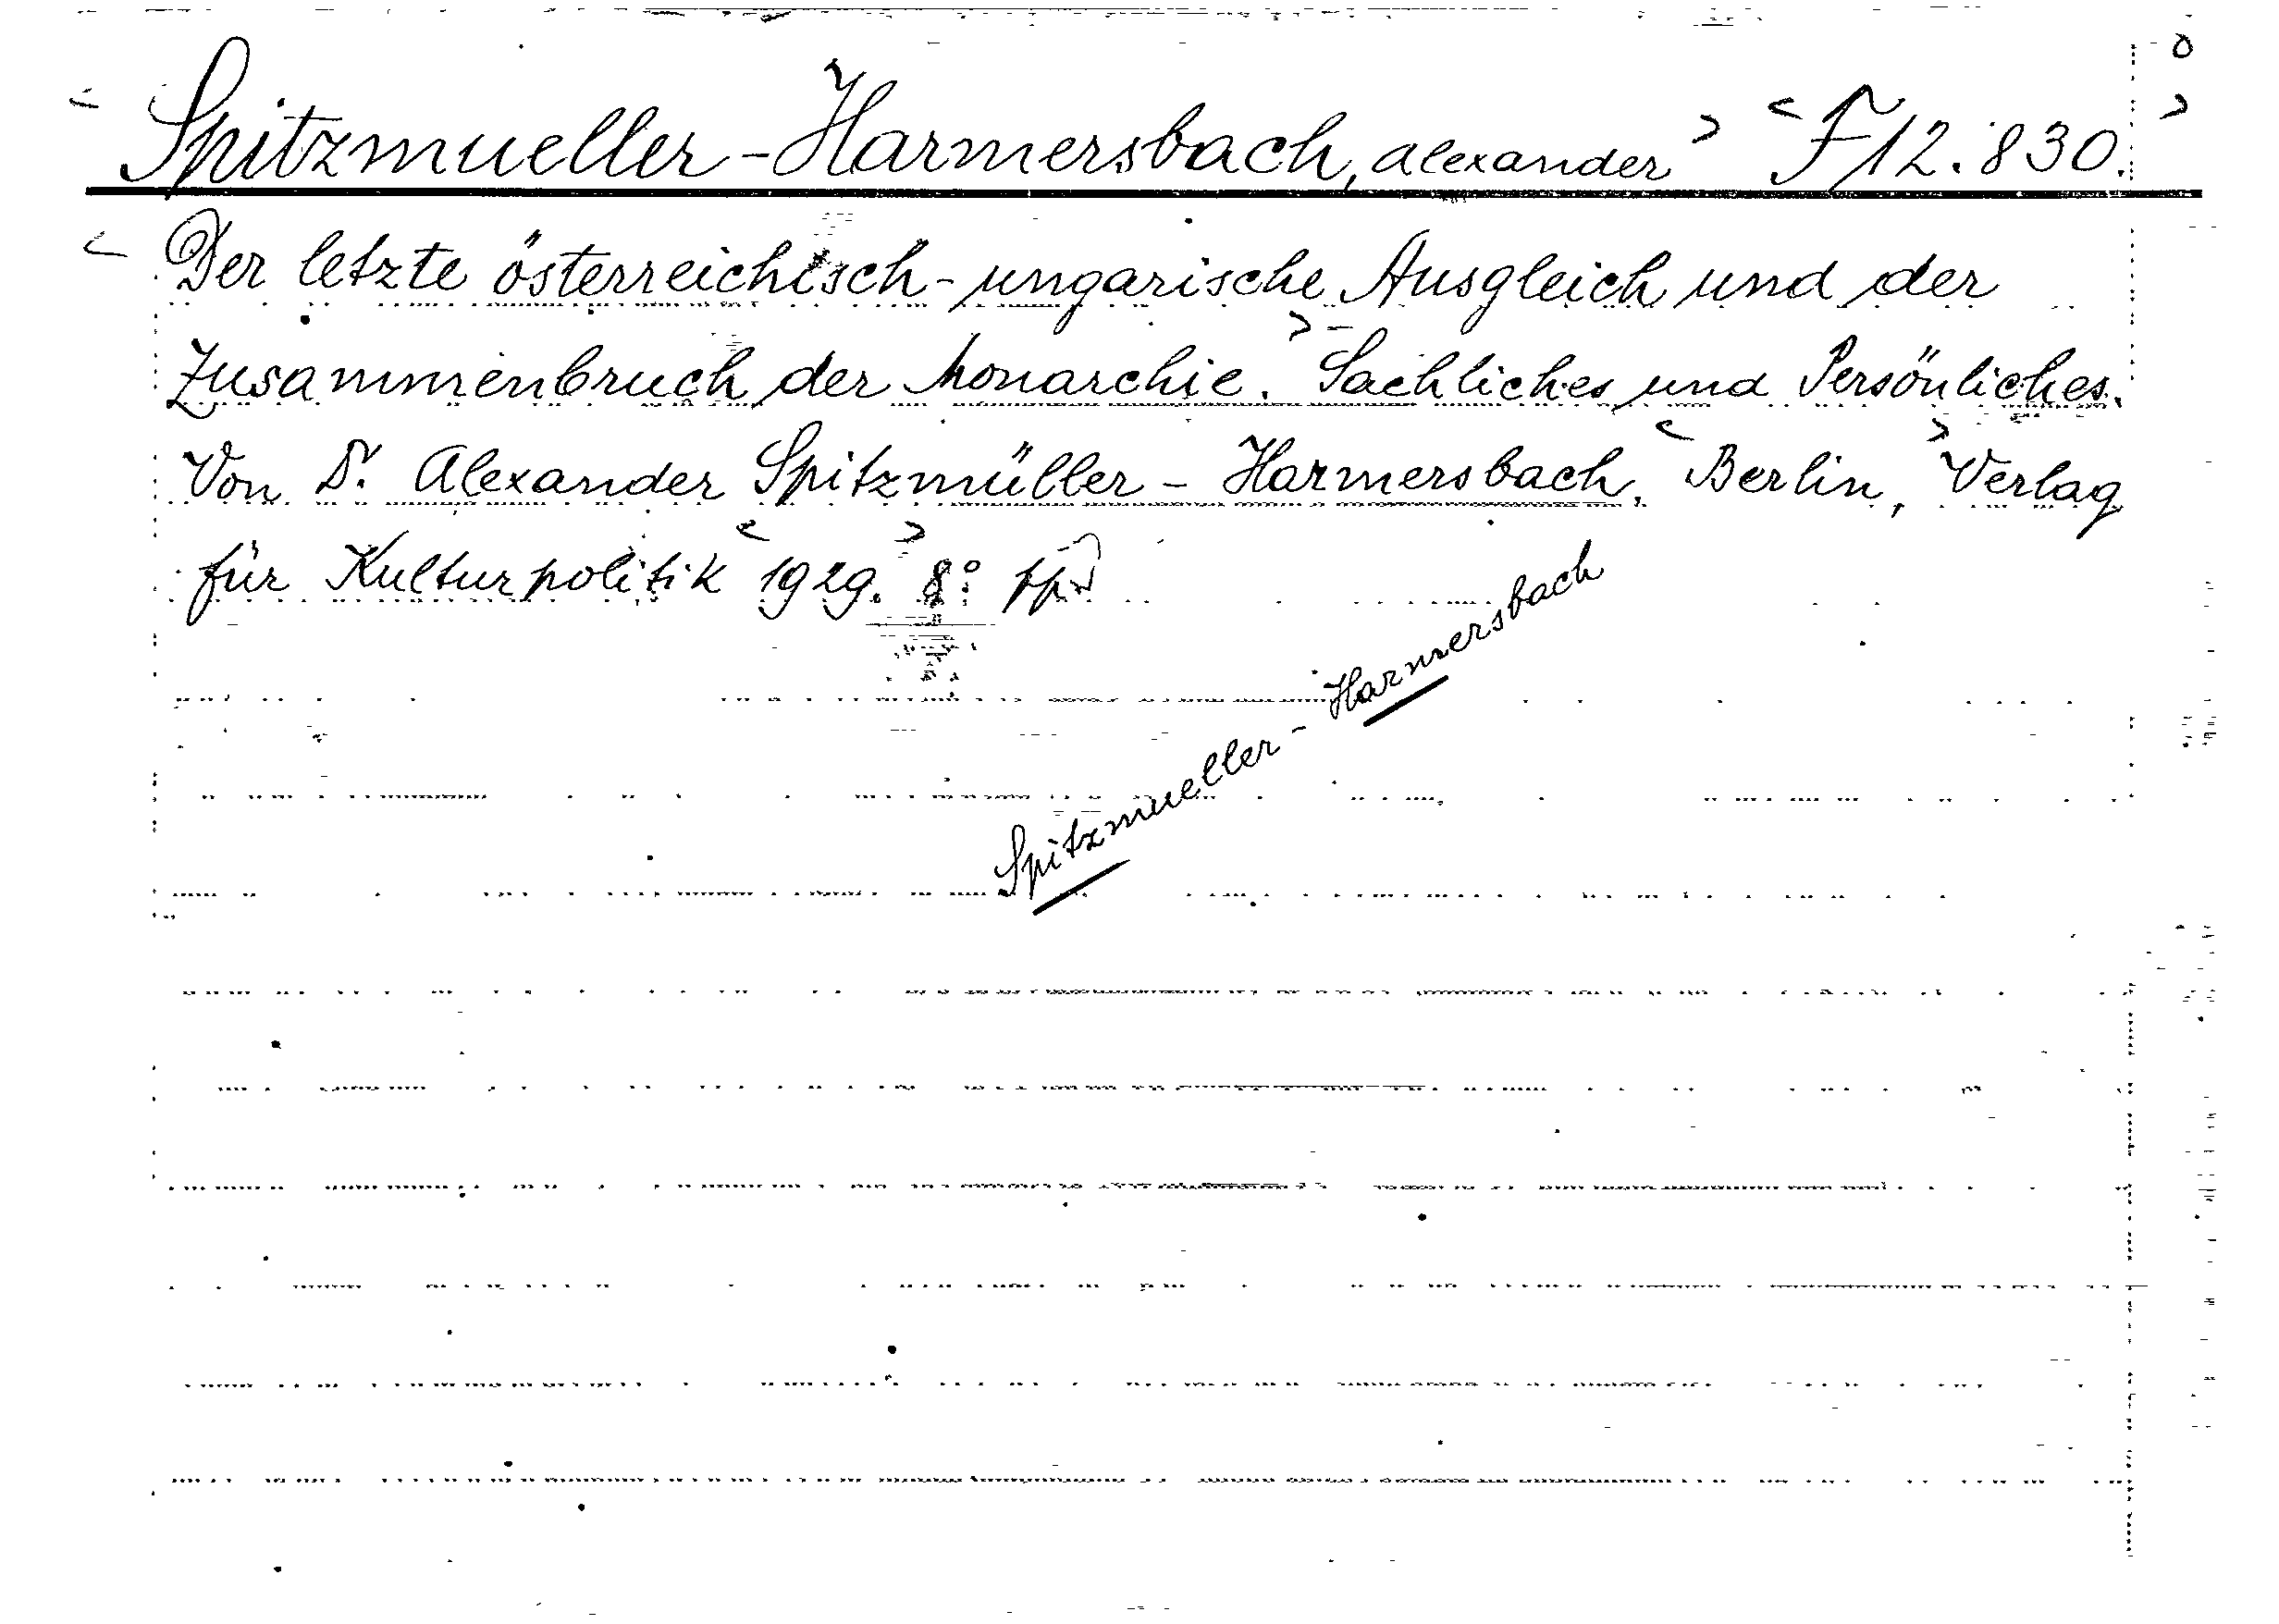 Spitzmueller-Harmersbach, Alexander F 12.830.
Der letzte österreichisch-ungarische Ausgleich und der
Zusammenbruch der Monarchie. Sachliches und Persönliches.
Von Dr. Alexander Spitzmüller-Harmersbach. Berlin, Verlag
für Kulturpolitik 1929. 8°
Spitzmueller-Harmersbach